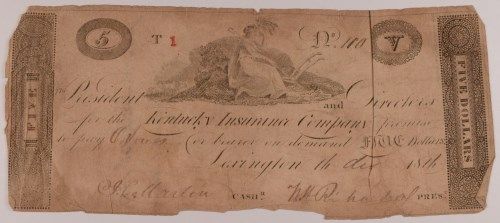 5 T 1 No. 110 V
FIVE
The President and Directors
for the Kentucky Insurance Company promise
to pay or bearer on demand FIVE Dollars
Lexington 1816
CASHr. PREST.
FIVE DOLLARS